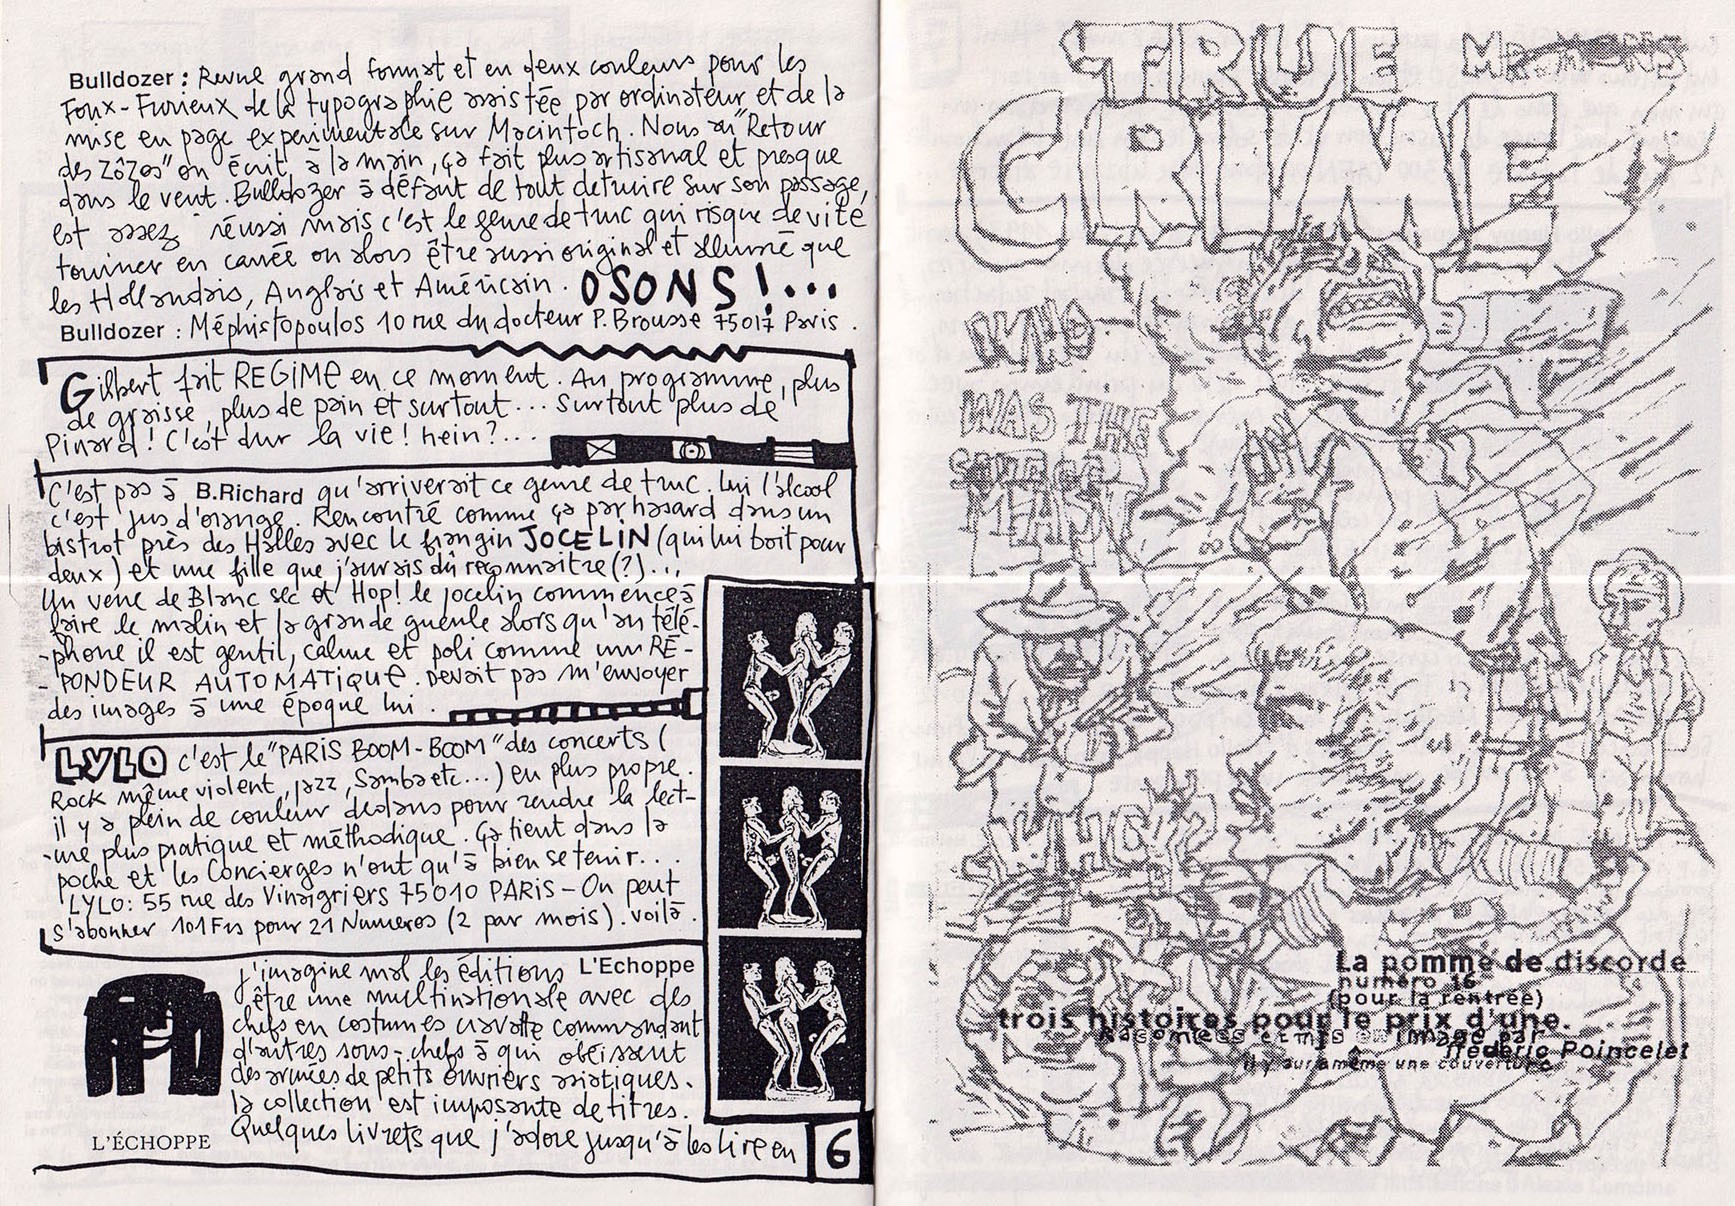 Bulldozer : Revue grand format et en deux couleurs pour les
Foux-Furieux de la typographie assistée par ordinateur et de la
mise en page expérimentale sur Macintoch. Nous au "Retour
des Zôzos" on écrit à la main, ça fait plus artisanal et presque
dans le vent. Bulldozer à défaut de tout detruire sur son passage,
est assez réussi mais c'est le genre de truc qui risque de vité
tourner en carrée ou alors être aussi original et allumé que
les Hollandais, Anglais et Américain. OSONS!...
Bulldozer : Méphistopoulos 10 rue du docteur P. Brousse 75017 Paris.
Gilbert fait REGIME en ce moment. Au programme, plus
de graisse, plus de pain et surtout... Surtout plus de
Pinard! C'est dur la vie! hein?....
C'est pas à B.Richard qu'arriverait ce genre de truc. Lui l'alcool
c'est jus d'orange. Rencontré comme ça par hasard dans un
bistrot près des Halles avec le frangin JOCELIN (qui lui boit pour
deux) et une fille que j'aurais dû reconnaitre (?)...
Un verre de Blanc sec et Hop! le jocelin commence à
faire le malin et la grande gueule alors qu'au télé-
-phone il est gentil, calme et poli comme un RÉ-
-PONDEUR AUTOMATIQUE. Devait pas m'envoyer
des images à une époque lui.
LYLO c'est le "PARIS BOOM-BOOM" des concerts (
Rock même violent, jazz, Samba etc...) en plus propre.
il y a plein de couleur dedans pour rendre la lect-
-ure plus pratique et méthodique. Ça tient dans la
poche et les Concierges n'ont qu'à bien se tenir...
LYLO: 55 rue des Vinaigriers 75010 PARIS - On peut
s'abonner 101 Frs pour 21 Numeros (2 par mois). voilà.
j'imagine mal les éditions L'Echoppe
être une multinationale avec des
chefs en costumes cravatte commandant
d'autres sous-chefs à qui obéissent
des armées de petits ouvriers asiatiques.
la collection est imposante de titres.
Quelques livrets que j'adore jusqu'à les lire en
L'ÉCHOPPE
6
TRUE
CRIME
WHO
WAS THE
MEAN
WHO
La pomme de discorde
numéro 16
(pour la rentrée)
trois histoires pour le prix d'une.
Racontées et mis en image par
frédéric Poincelet
il y aura même une couverture